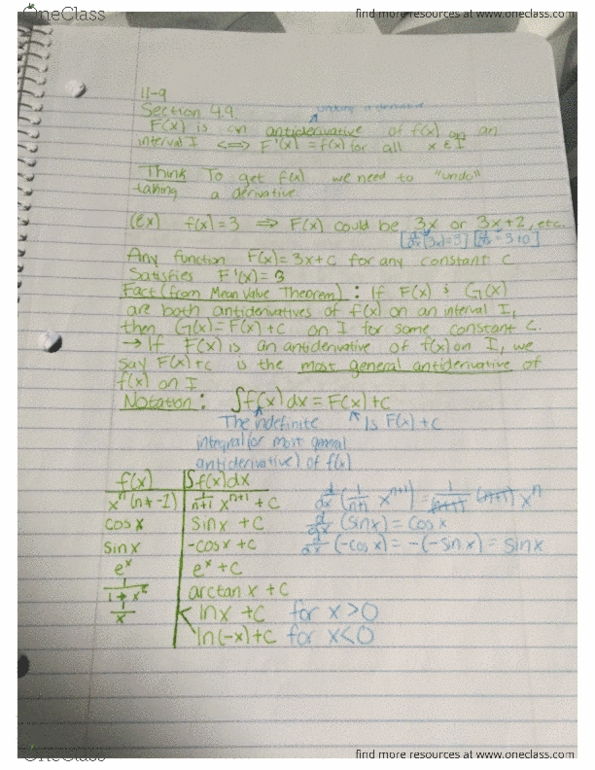 OneClass
find more resources at www.oneclass.com
11-9
Section 4.9
undoing a derivative
F(x) is an antiderivative of f(x) on an
interval I ⟺ F'(x) = f(x) for all x ∈ I
Think To get f(x) we need to "undo"
taking a derivative
(ex) f(x) = 3 ⟹ F(x) could be 3x or 3x+2, etc.
[d/dx(3x)=3] [d/dx = 3+0]
Any function F(x) = 3x+C for any constant C
Satisfies F'(x) = 3
Fact (from Mean Value Theorem): If F(x) & G(x)
are both antiderivatives of f(x) on an interval I,
then G(x) = F(x) + C on I for some constant C.
→ If F(x) is an antiderivative of f(x) on I, we
say F(x)+c is the most general antiderivative of
f(x) on I
Notation: ∫f(x)dx = F(x)+C
The indefinite Is F(x)+C
integral (or most general
antiderivative) of f(x)
f(x) ∫f(x)dx
x^n (n≠-1) 1/(n+1) x^(n+1) + C d/dx (1/(n+1) x^(n+1)) = 1/(n+1) (n+1) x^n
cos x sin x + C d/dx (sin x) = cos x
sin x -cos x + C d/dx (-cos x) = -(-sin x) = sin x
e^x e^x + C
1/(1+x^2) arctan x + C
1/x ln x + C for x > 0
ln(-x) + C for x < 0
OneClass
find more resources at www.oneclass.com